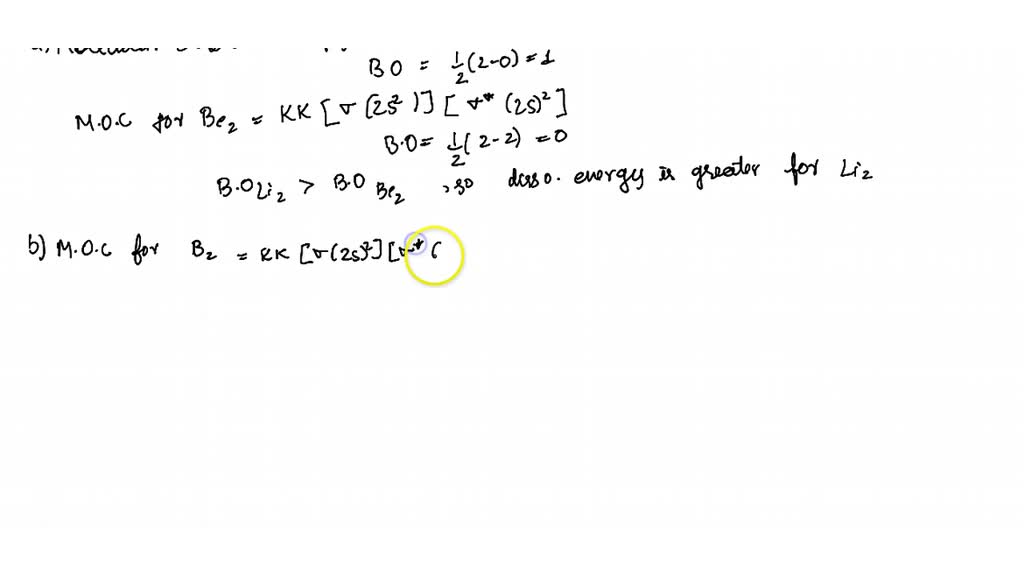 BO = 1/2 (2-0) = 1
M.O.C for Be₂ = KK [σ (2s²)] [σ* (2s)²]
B.O = 1/2 (2-2) = 0
B.O Li₂ > B.O Be₂ , so disso. energy is greater for Li₂
b) M.O.C for B₂ = KK [σ(2s)²] [σ* (